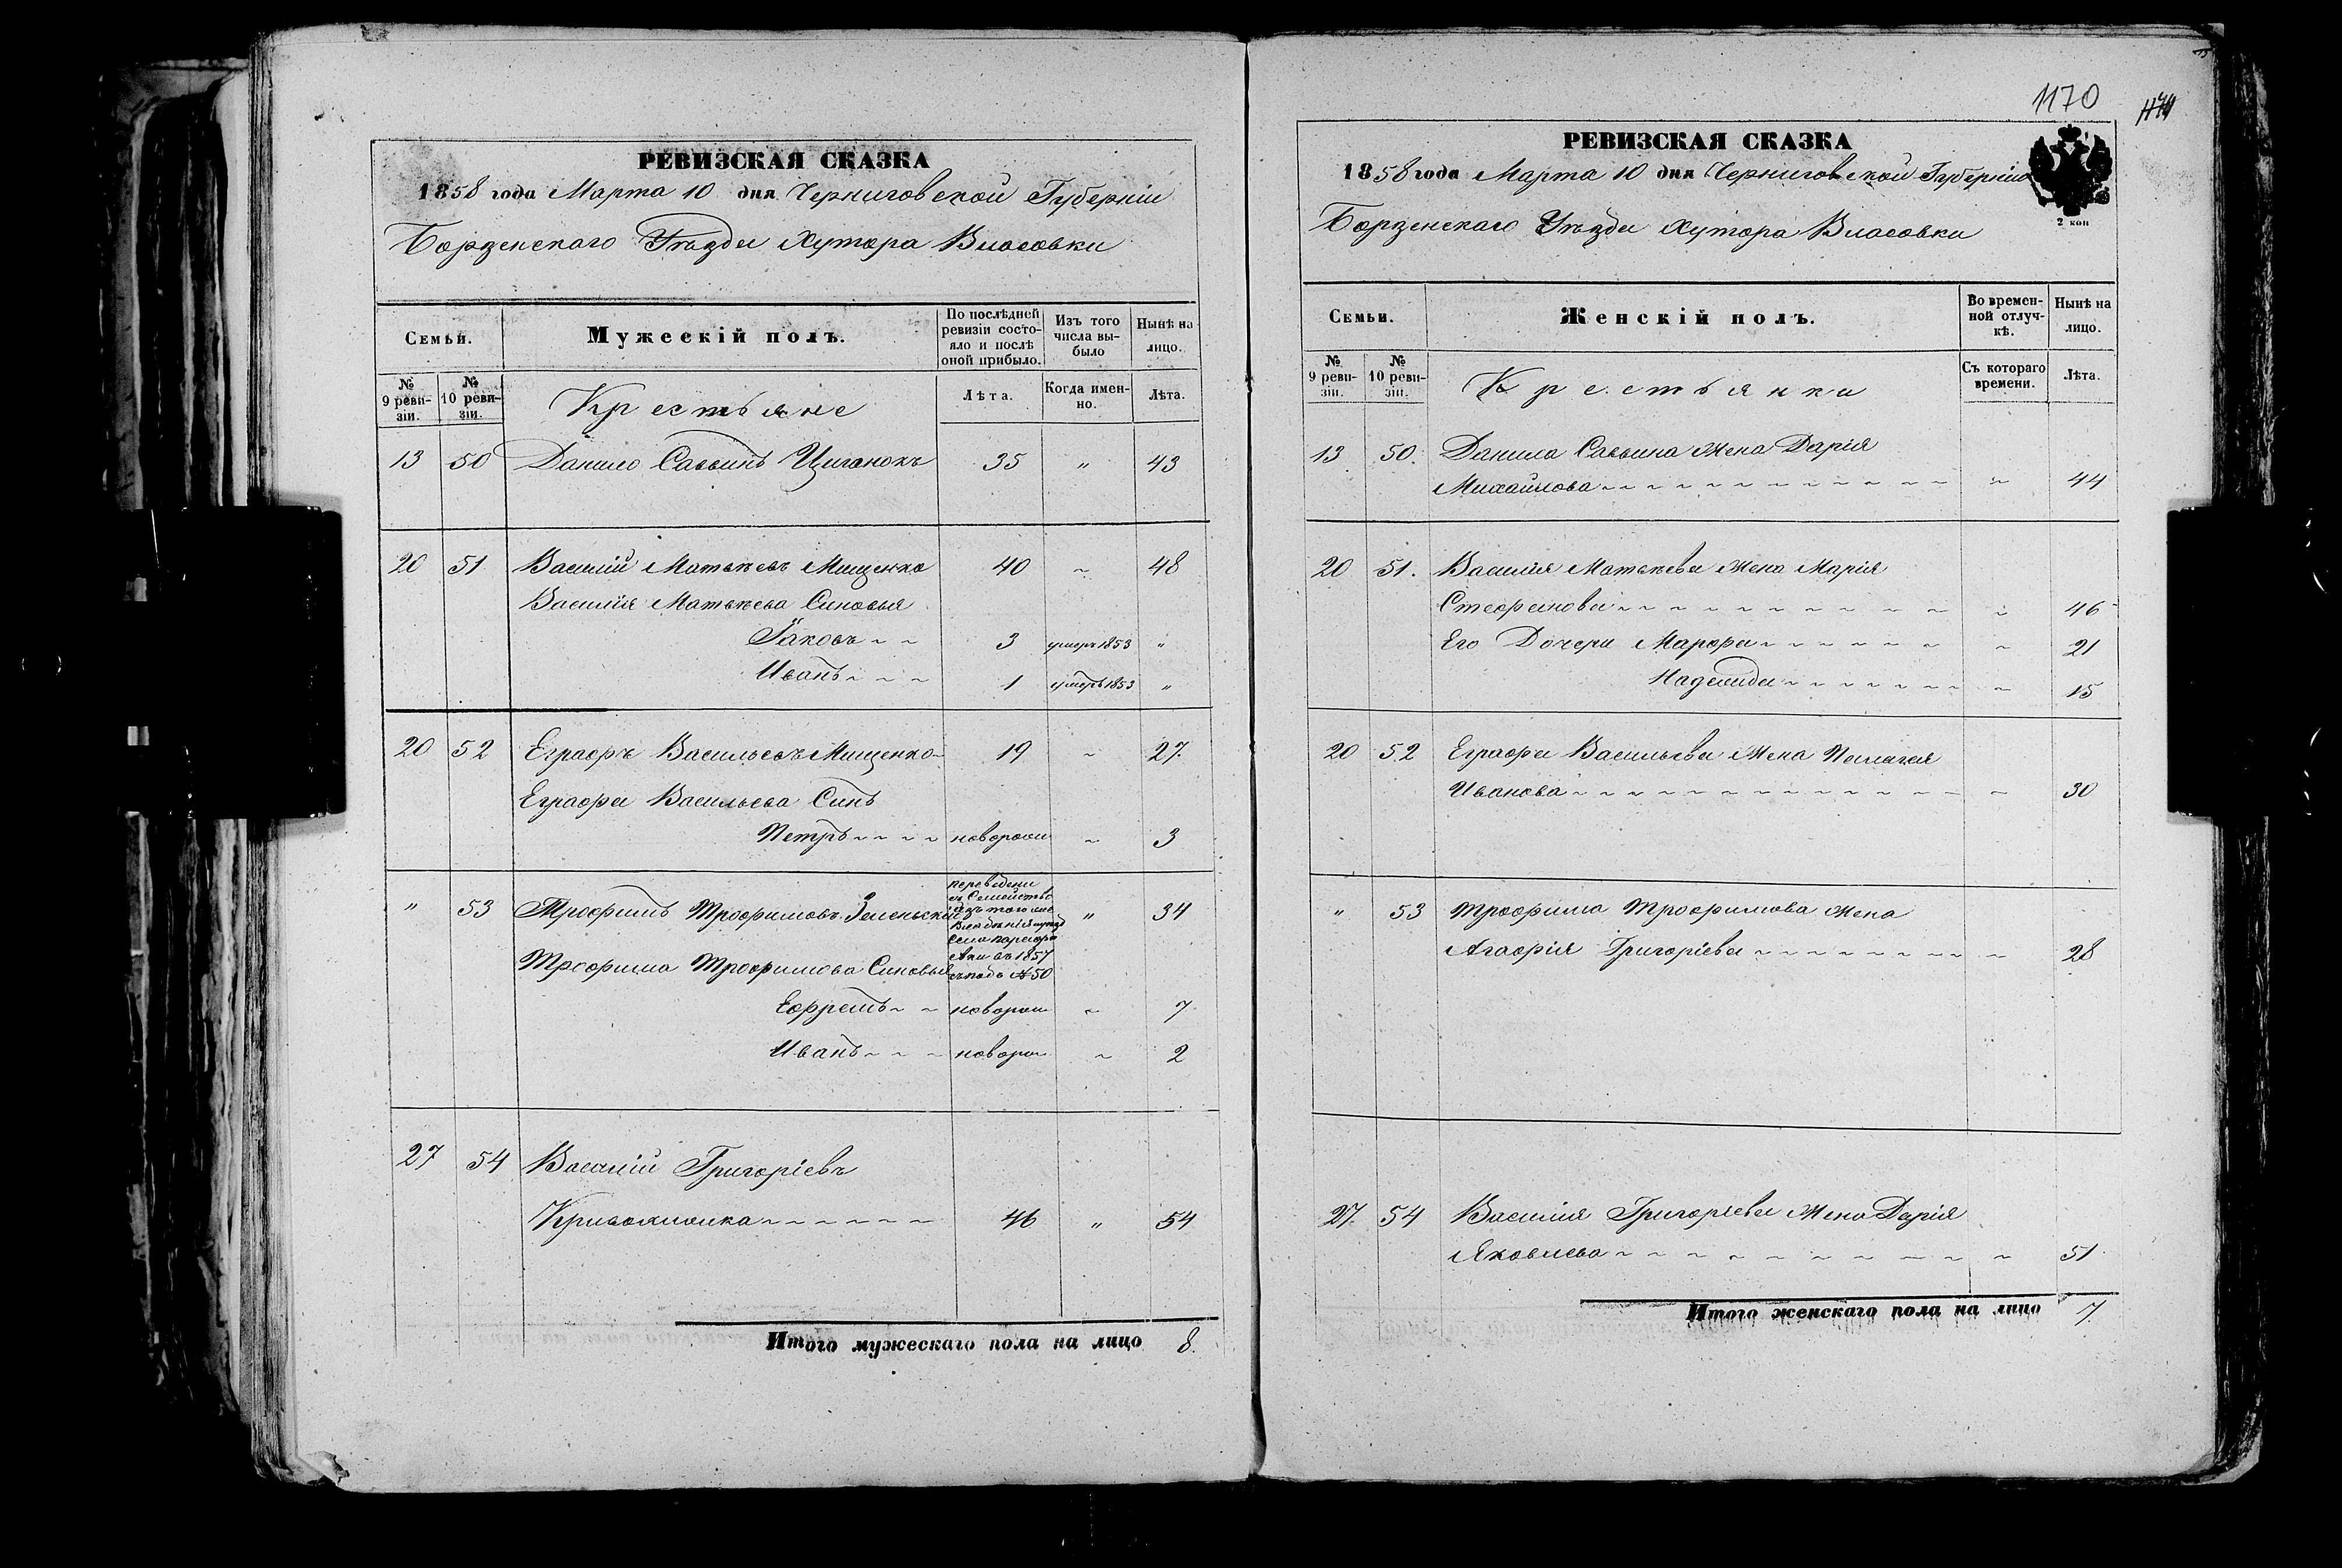 РЕВИЗСКАЯ СКАЗКА
1858 года Марта 10 дня Черниговской Губерніи
Борзенскаго Уѣзда Хутора Власовки
Семьи.
Мужескій полъ.
По послѣдней ревизіи состояло и послѣ оной прибыло.
Изъ того числа выбыло
Нынѣ на лицо.
№ 9 ревизіи.
№ 10 ревизіи.
Крестьяне
Лѣта.
Когда именно.
Лѣта.
13 50 Данило Саввинъ Циганокъ 35 " 43
20 51 Василій Матвѣевъ Мищенко 40 ~ 48
Василія Матвѣева Синовья
Яковъ ~ ~ 3 умеръ 1853 "
Иванъ ~ ~ ~ 1 умеръ 1853 "
20 52 Еграфъ Васильевъ Мищенко 19 ~ 27
Еграфа Васильева Синъ
Петръ ~ ~ ~ ~ новорожд ~ 3
" 53 Трофимъ Трофимовъ Зеленьскій " 34
переведени
съ Семейство
изъ того же
Владѣнія
Села
въ 1857
№ 50
Трофима Трофимова Синовья
Ефремъ ~ ~ новорож ~ 7
Иванъ ~ ~ ~ новорож ~ 2
27 54 Василій Григоріевъ
46 " 54
Итого мужескаго пола на лицо 8.
1170
РЕВИЗСКАЯ СКАЗКА
1858 года Марта 10 дня Черниговской Губерніи
2 коп
Борзенскаго Уѣзда Хутора Власовки
Семьи.
Женскій полъ.
Во временной отлучкѣ.
Нынѣ на лицо.
№ 9 ревизіи.
№ 10 ревизіи.
Крестьянки
Съ котораго времени.
Лѣта.
13 50. Данила Саввина Жена Дарія
Михайлова ~ 44
20 51. Василія Матвѣева Жена Марія
Стефанова ~ 46
Его Дочери Марфа ~ 21
Надежда ~ 15
20 52 Еграфа Васильева Жена Пелагея
Иванова ~ 30
" 53 Трофима Трофимова Жена
Агафія Григоріева ~ 28
27 54 Василія Григоріева Жена Дарія
Яковлева ~ 51
Итого женскаго пола на лицо 7.